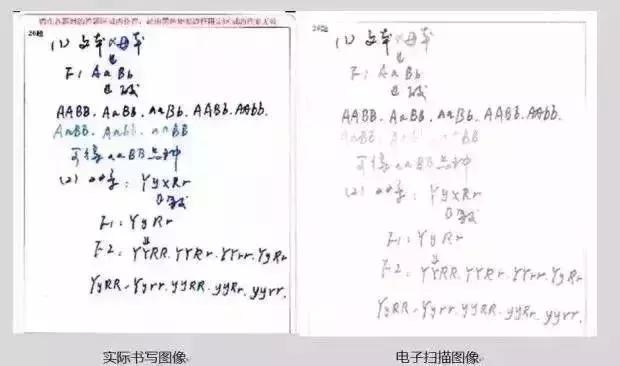 请在各题目的答题区域内作答，超出黑色矩形边框限定区域的答案无效
26题
(1) 父本×母本
↓
F1 AaBb
AABB. AaBB. aaBb. AABb. AAbb.
AaBB. Aabb. aaBB
可得aaBB品种
(2) : YyxRr
F1: YyRr
↓
F2: YYRR. YYRr. YYrr. YyRr
YyRR. Yyrr. yyRR. yyRr. yyrr.
实际书写图像
26题
(1) 父本×母本
↓
F1 AaBb
AABB. AaBB. aaBb. AABb. AAbb.
AaBB. Aabb. aaBB
可得aaBB品种
(2) : YyxRr
F1: YyRr
↓
F2: YYRR. YYRr. YYrr. YyRr
YyRR. Yyrr. yyRR. yyRr. yyrr.
电子扫描图像